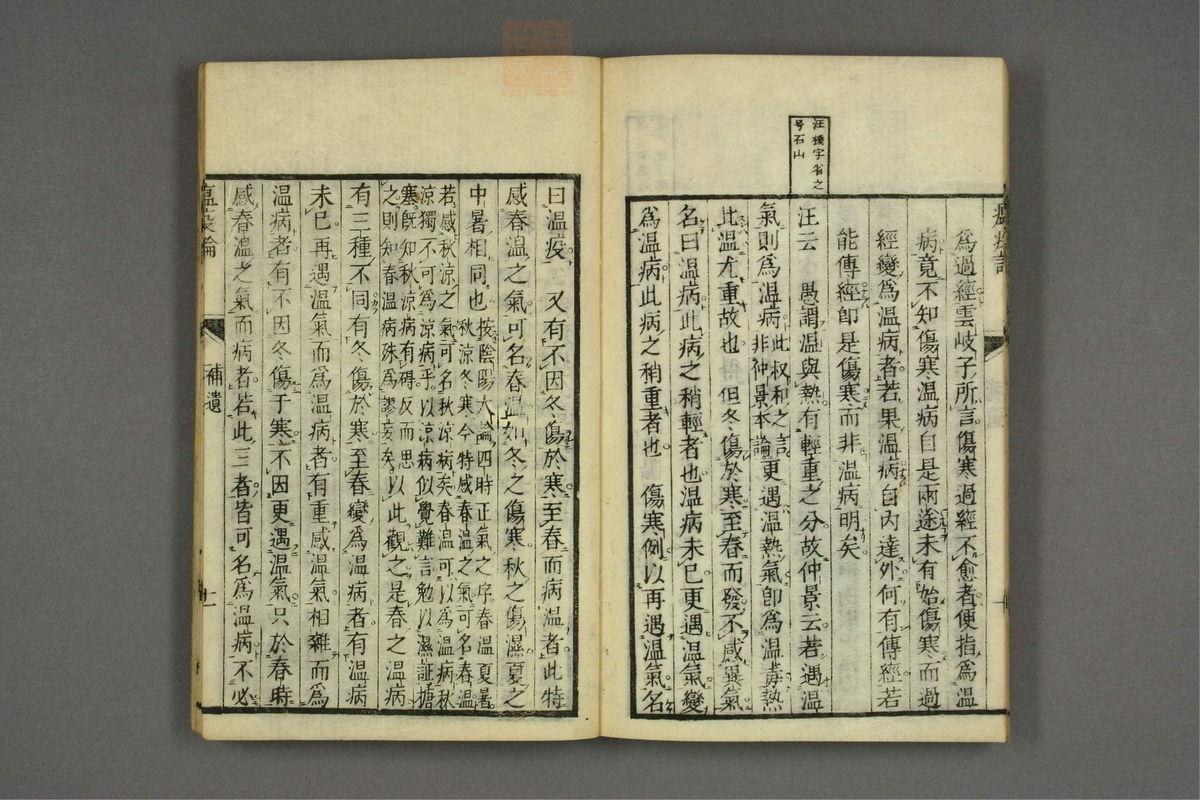 汪機字省之
号石山
為過經雲岐子所言傷寒過經不愈者便指為温
病竟不知傷寒温病自是兩途未有始傷寒而過
經變為温病者若果温病自内達外何有傳經若
能傳經即是傷寒而非温病明矣
汪云 愚謂温與熱有輕重之分故仲景云若遇温
氣則為温病此叔和之言非仲景本論更遇温熱氣即為温毒熱
此温尤重故也 但冬傷於寒至春而發不感異氣
名曰温病此病之稍輕者也温病未已更遇温氣變
為温病此病之稍重者也 傷寒例以再遇温氣名
曰温疫 又有不因冬傷於寒至春而病温者此特
感春温之氣可名春温如冬之傷寒秋之傷濕夏之
中暑相同也按陰陽大論四時正氣之序春温夏暑秋涼冬寒今特感春温之氣可名春温
若感秋涼之氣可名秋涼病矣春温可以為温病秋
涼獨不可為涼病乎以涼病似覺難言勉以濕証搪
塞既知秋涼病有碍反而思
之則知春温病殊為謬妄矣以此觀之是春之温病
有三種不同有冬傷於寒至春變為温病者有温病
未已再遇温氣而為温病者有重感温氣相雜而為
温病者有不因冬傷于寒不因更遇温氣只於春時
感春温之氣而病者若此三者皆可名為温病不必
補遺